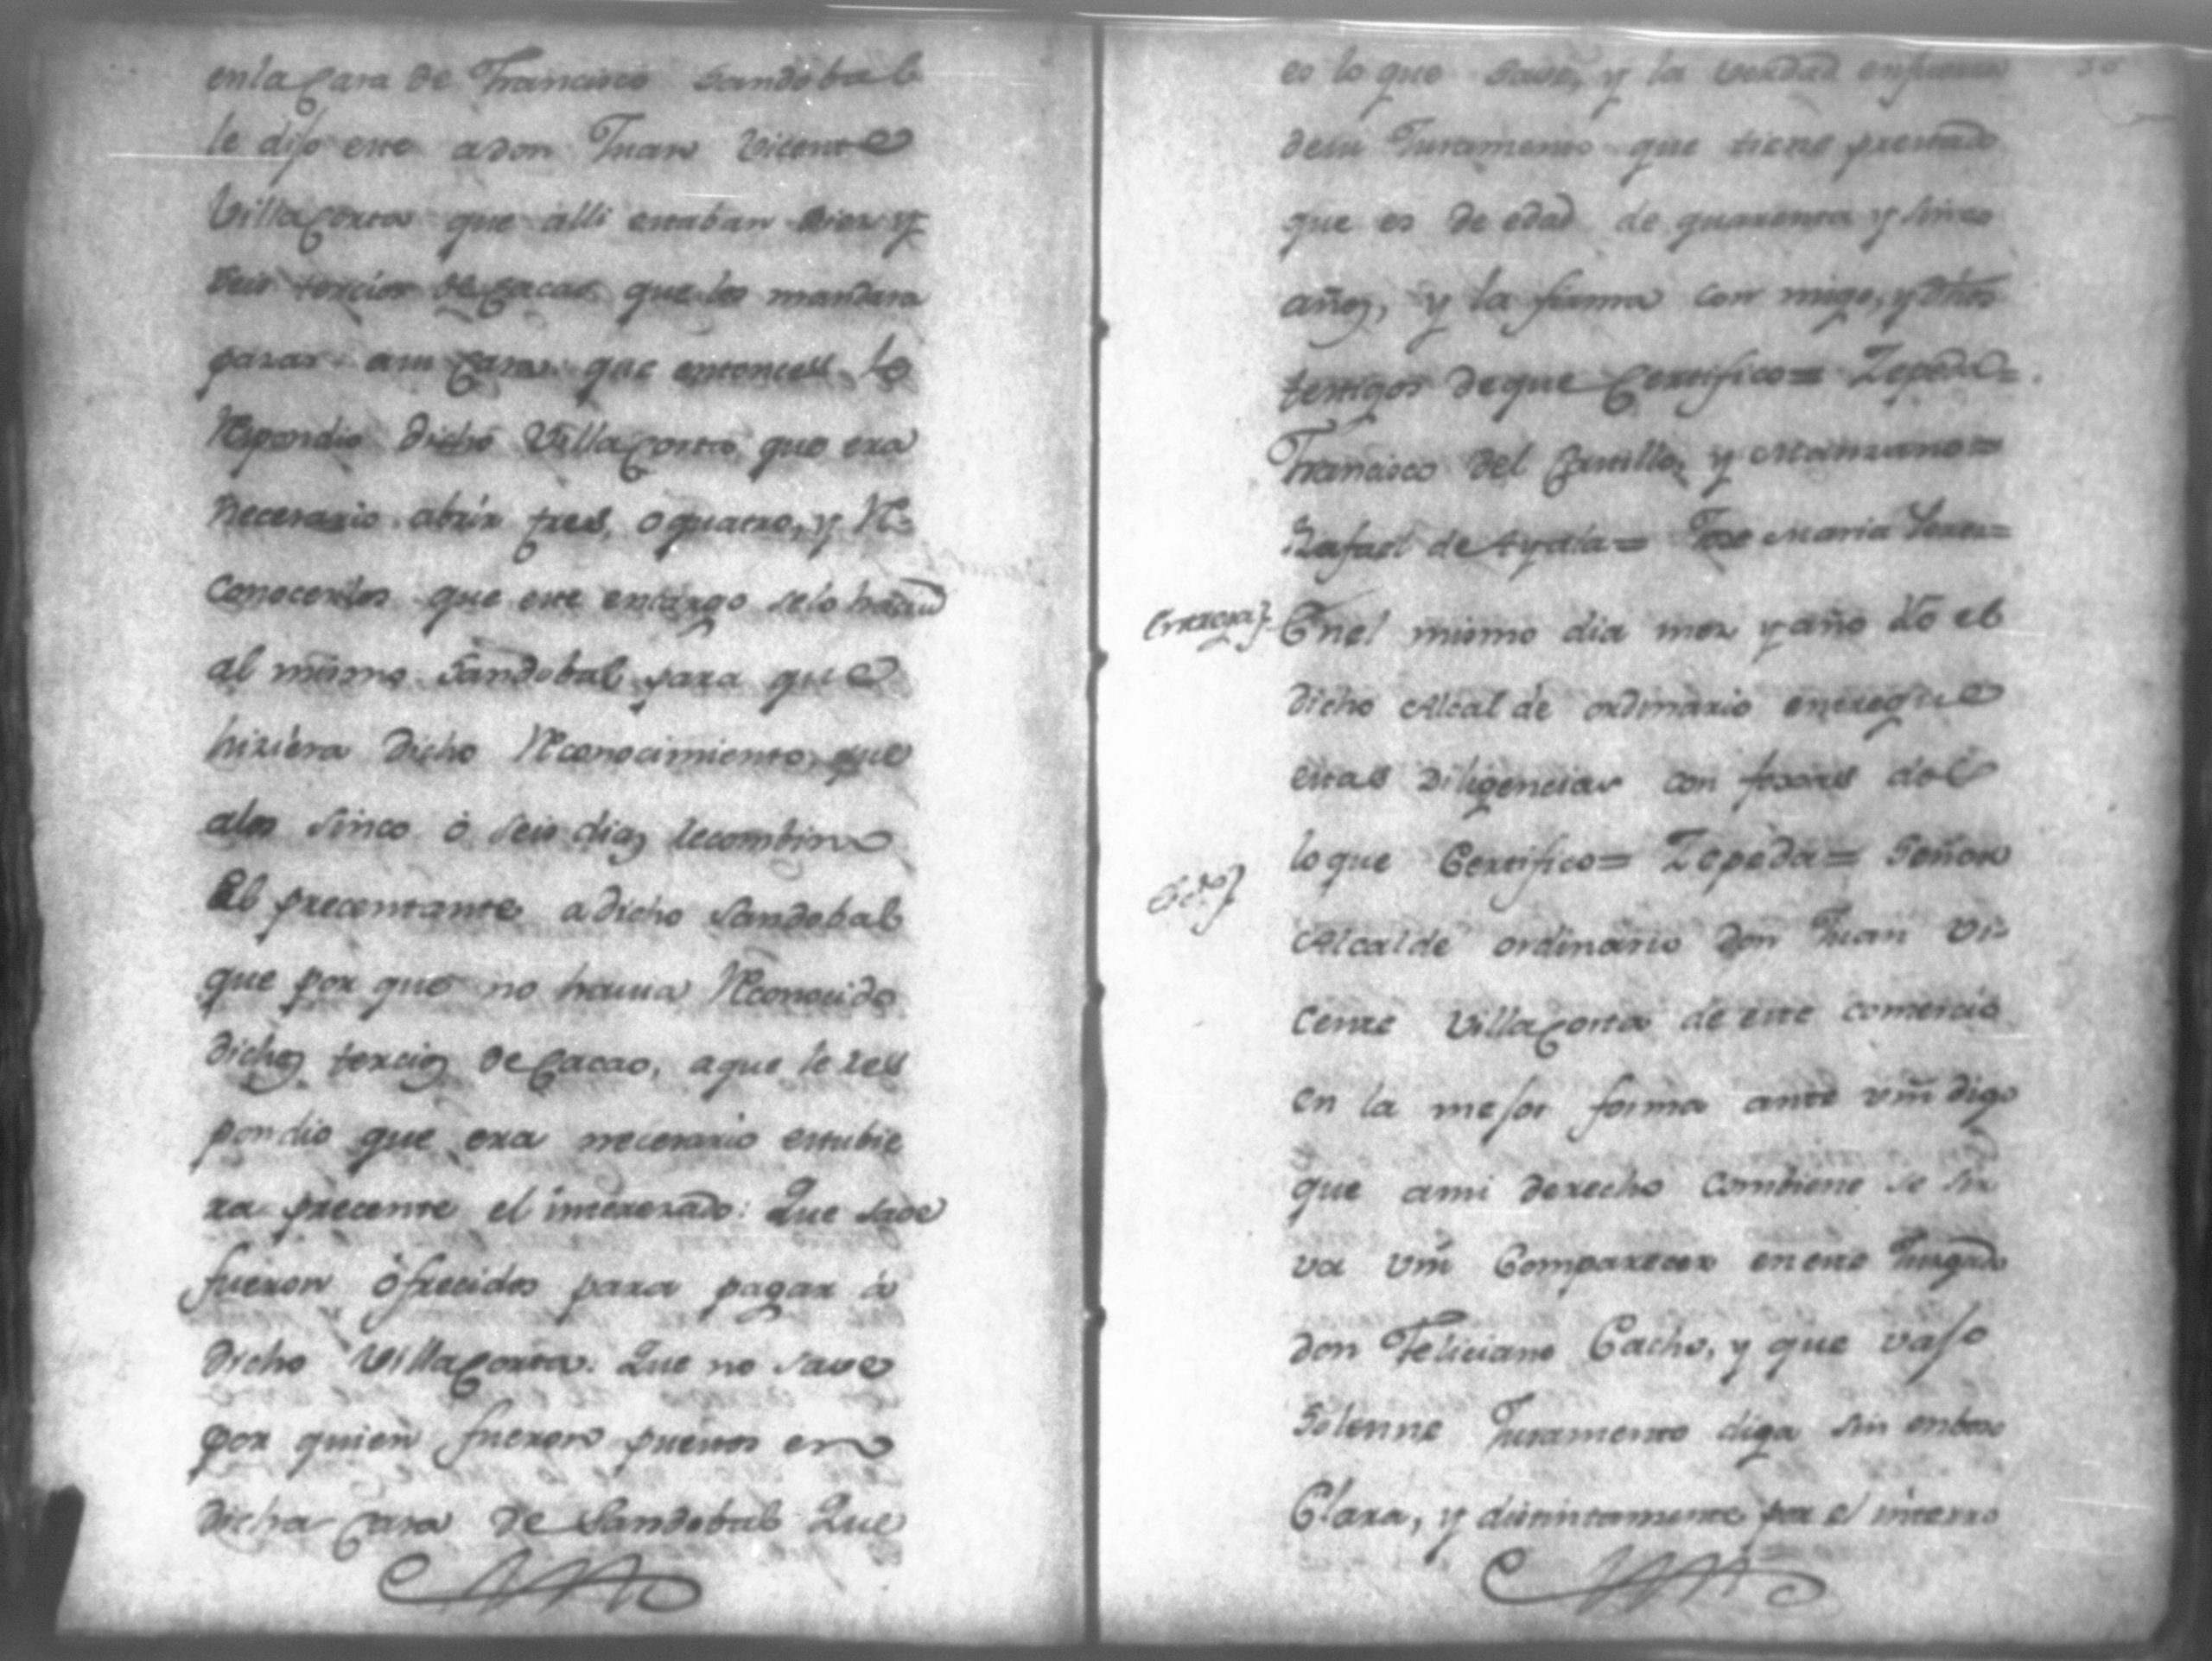 en la Casa de Francisco Sandobal
le dijo este a don Juan Vicente
Villa Corta que alli estaban dies y
seis tercios de Cacao que los mandara
pasar a su Casa que entonces le
Respondio dicho Villa Corta que era
necesario abrir tres, o quatro, y Re=
conocerlos que este encargo se lo haciu
al mismo Sandobal para que
hiziera dicho Reconocimiento, que
a los sinco ó seis dias lecombino
El precentante a dicho Sandobal
que por que no havia Reconocido
dichos tercios de Cacao, a que le res
pondio que era necesario estubie
ra precente el interesado: Que save
fueron ofrecidos para pagar á
dicho Villa Corta. Que no save
por quien fueron puestos en
dicha Casa de Sandobal Que
es lo que save, y la verdad en fuerza
de su Juramento que tiene prestado
que es de edad de quarenta y sinco
años, y la firma con migo, y dhos
testigos de que Certifico= Zepeda=
Francisco del Castillo, y Manzano=
Rafael de Ayala= Jose Maria
Entrega} En el mismo dia mes y año Yo el
dicho Alcalde ordinario entregue
estas diligencias con foxas
lo que Certifico= Zepeda= Señor
Alcalde ordinario don Juan Vi=
cente Villa Corta de este comercio
en la mejor forma ante vm̃ digo
que a mi derecho combiene se sir
va vm̃ Comparecer en este Jusgado
don Feliciano Cacho, y que vajo
Solenne Juramento diga sin enbozo
Clara, y distintamente por el interro